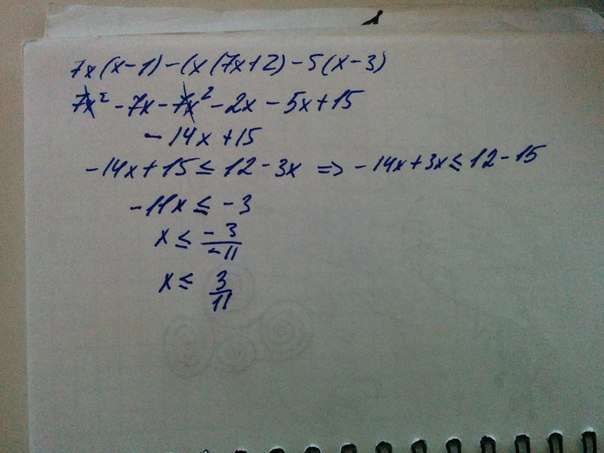 7x(x-1)-(x(7x+2)-5(x-3)
7x²-7x-7x²-2x-5x+15
-14x+15
-14x+15≤12-3x => -14x+3x≤12-15
-11x≤-3
x≤ -3/-11
x≤ 3/11